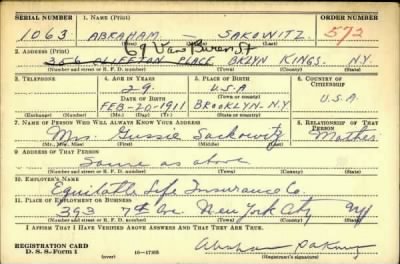 SERIAL NUMBER 1. NAME (Print) ORDER NUMBER
1063 ABRAHAM — SAKOWITZ 572
(First) (Middle) (Last)
69 Van Buren St
2. ADDRESS (Print)
356 CLIFTON PLACE BKLYN KINGS. N.Y.
(Number and street or R. F. D. number) (Town) (County) (State)
3. TELEPHONE 4. AGE IN YEARS 5. PLACE OF BIRTH 6. COUNTRY OF CITIZENSHIP
29. U.S.A
DATE OF BIRTH (Town or county)
FEB-20-1911 BROOKLYN-N.Y. U.S.A.
(Exchange) (Number) (Mo.) (Day) (Yr.) (State or country)
7. NAME OF PERSON WHO WILL ALWAYS KNOW YOUR ADDRESS 8. RELATIONSHIP OF THAT PERSON
Mrs. Gussie Sackowitz Mother
(Mr., Mrs., Miss) (First) (Middle) (Last)
9. ADDRESS OF THAT PERSON
Same as above
(Number and street or R. F. D. number) (Town) (County) (State)
10. EMPLOYER'S NAME
Equitable Life Insurance Co.
11. PLACE OF EMPLOYMENT OR BUSINESS
393 7th Ave. New York City NY
(Number and street or R. F. D. number) (Town) (County) (State)
I AFFIRM THAT I HAVE VERIFIED ABOVE ANSWERS AND THAT THEY ARE TRUE.
REGISTRATION CARD
D. S. S. Form 1 (over) 16—17105 (Registrant's signature)